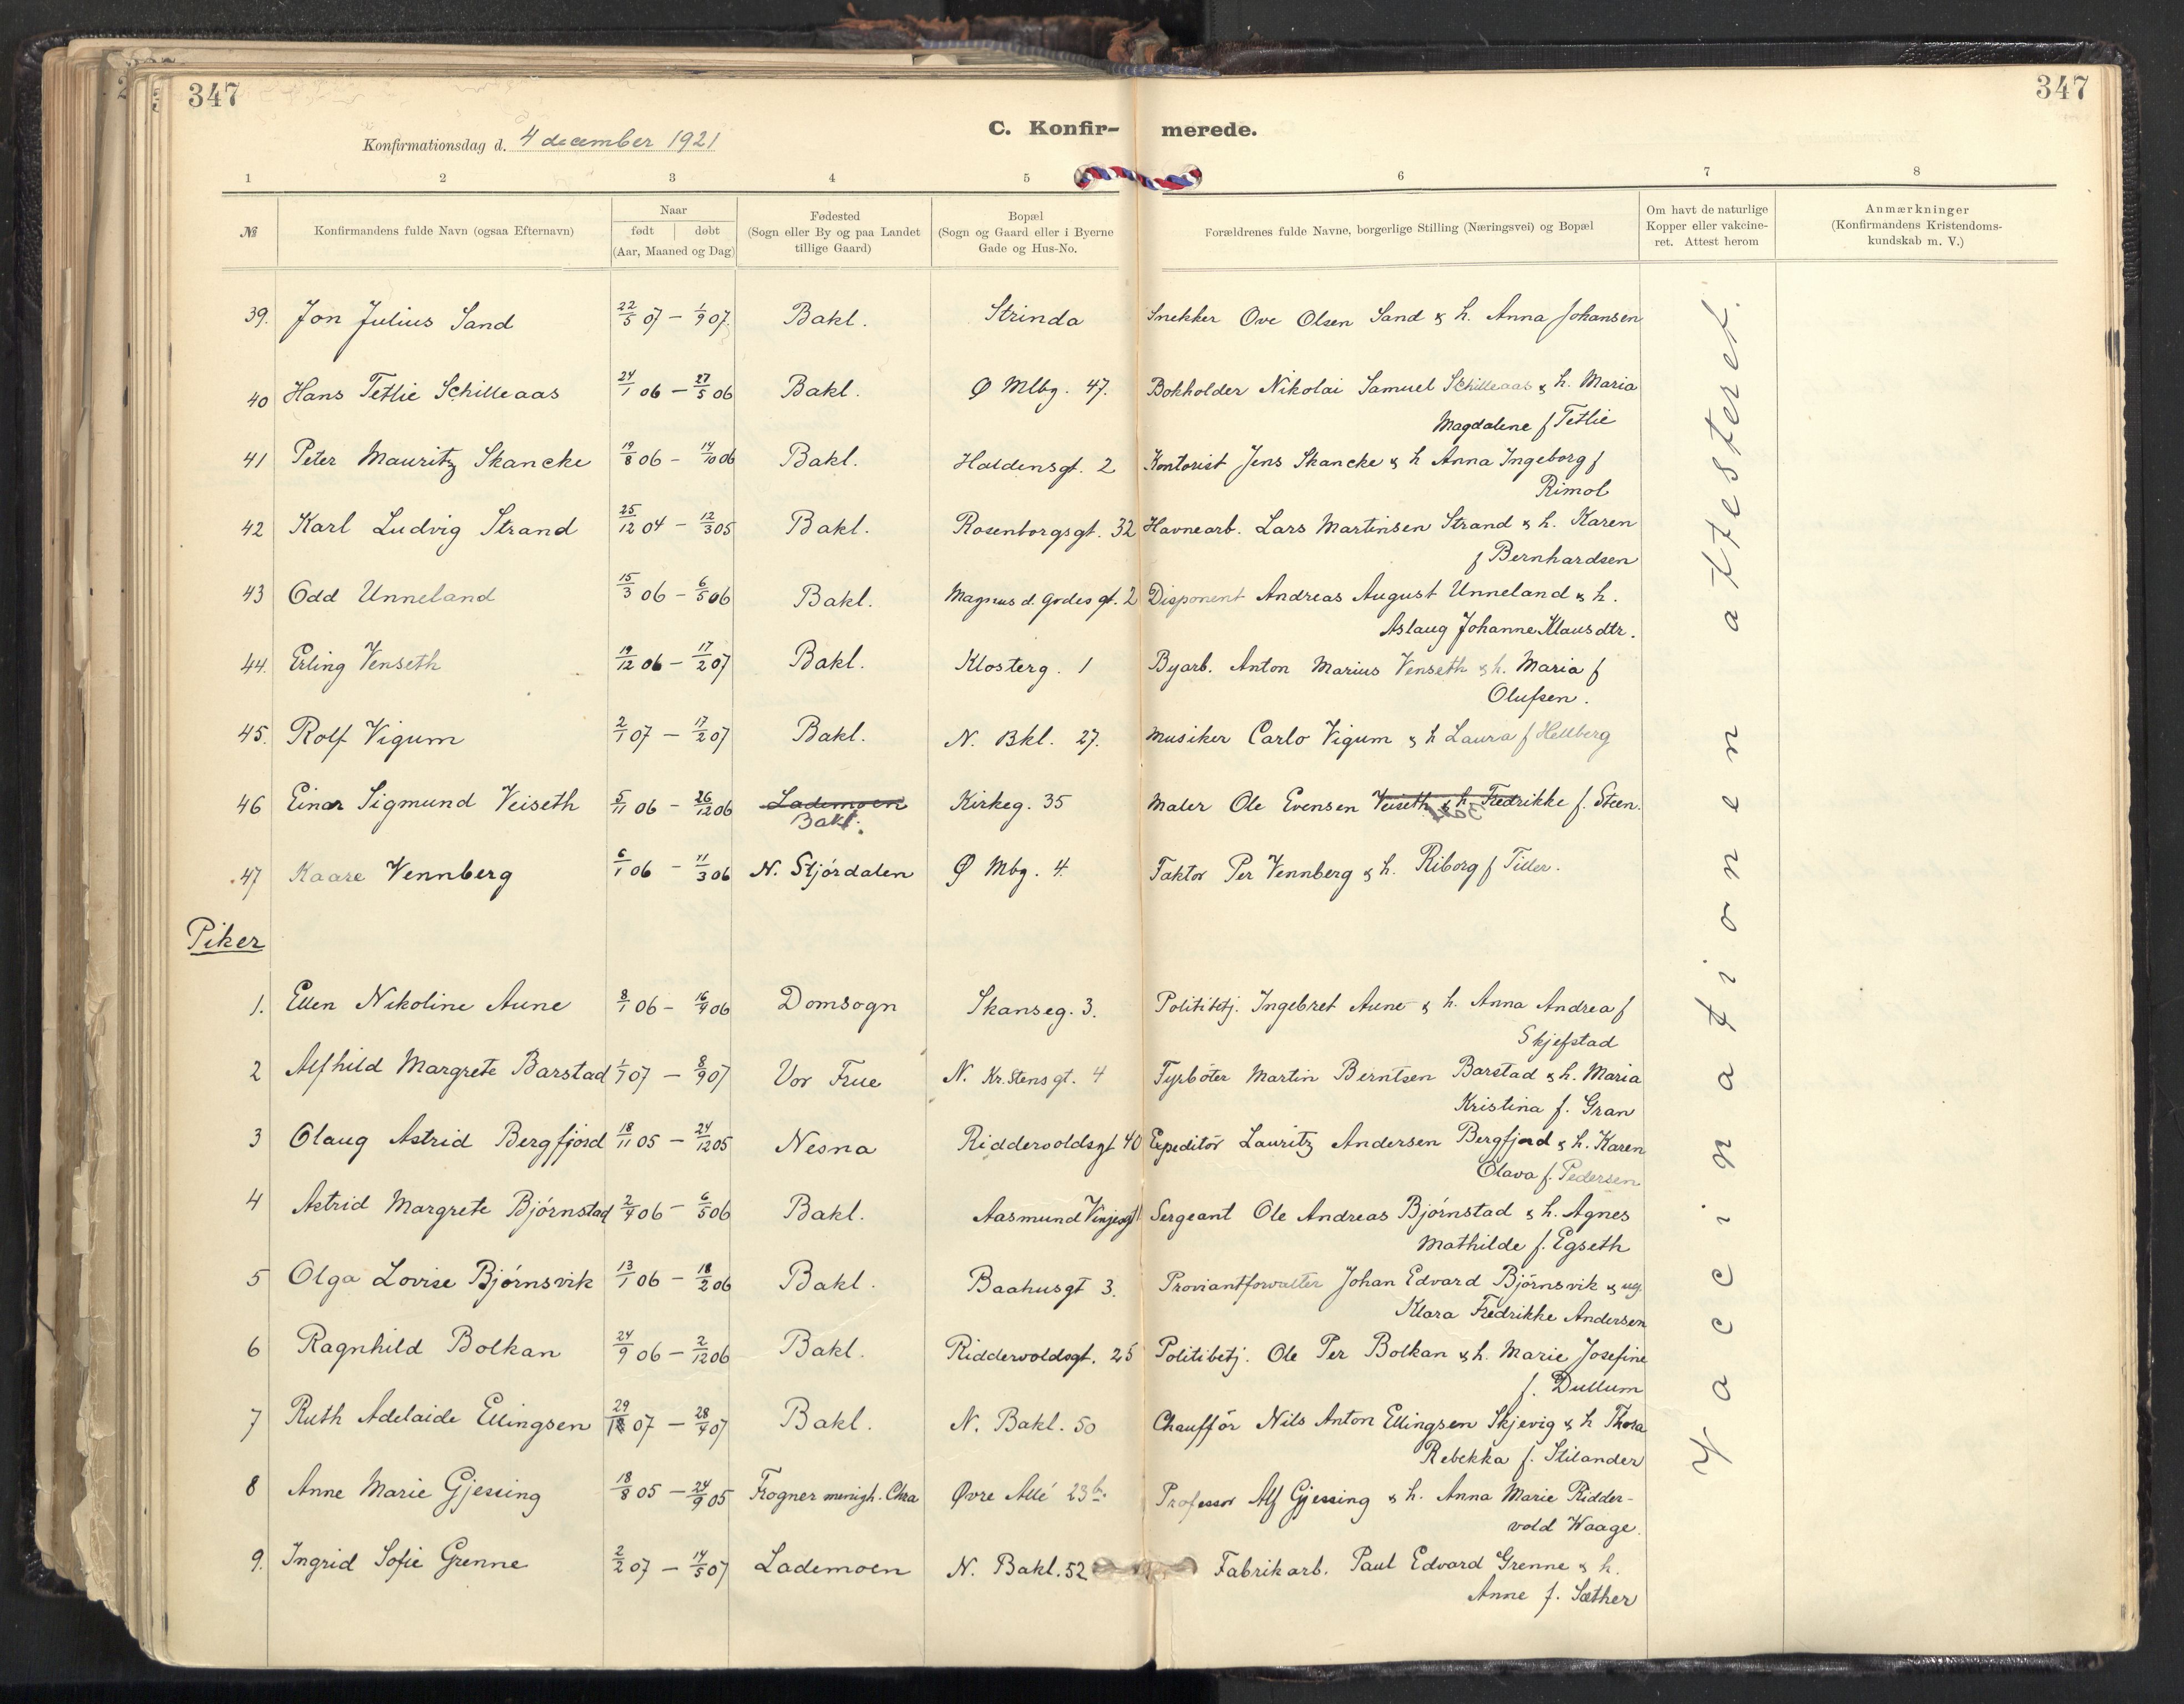 347
347
C. Konfir- merede.
Konfirmationsdag d. 4 december 1921
1 2 3 4 5 6 7 8
№ Konfirmandens fulde Navn (ogsaa Efternavn)
Naar
født døbt
(Aar, Maaned og Dag)
Fødested
(Sogn eller By og paa Landet
tillige Gaard)
Bopæl
(Sogn og Gaard eller i Byerne
Gade og Hus-No.
Forældrenes fulde Navne, borgerlige Stilling (Næringsvei) og Bopæl
Om havt de naturlige
Kopper eller vakcine-
ret. Attest herom
Anmærkninger
(Konfirmandens Kristendoms-
kundskab m. V.)
39. Jon Julius Sand 22/5 07 - 1/9 07. Bakl. Strinda Snekker Ove Olsen Sand & h. Anna Johansen
40 Hans Tetlie Schilleaas 24/1 06 - 27/5 06 Bakl. Ø Mlbg. 47. Bokholder Nikolai Samuel Schilleaas & h. Maria
Magdalene f Tetlie
41 Peter Mauritz Skancke 19/8 06 - 14/10 06 Bakl. Haldensgt. 2 Kontorist Jens Skancke & h Anna Ingeborg f
Rimol
42 Karl Ludvig Strand 25/12 04 - 12/3 05 Bakl. Rosenborgsgt. 32 Havnearb. Lars Martinsen Strand & h. Karen
f Bernhardsen
43 Odd Unneland 15/3 06 - 6/5 06 Bakl. Magnus d. Godes gt. 2 Disponent Andreas August Unneland & h.
Aslaug Johanne Klausdtr.
44. Erling Venseth 19/12 06 - 17/2 07 Bakl. Klosterg. 1 Byarb. Anton Marius Venseth & h. Maria f
Olufsen.
45. Rolf Vigum 2/1 07 - 17/2 07 Bakl. N. Bkl. 27. Musiker Carlo Vigum & h Laura f Hellberg
46 Einar Sigmund Veiseth 5/11 06 - 26/12 06 Lademoen Kirkeg. 35 Maler Ole Evensen Veiseth & h. Fredrikke f. Steen.
Bakl.
47 Kaare Vennberg 6/1 06 - 11/3 06 N. Stjørdalen Ø Mbg. 4. Faktor Per Vennberg & h. Riborg f Tiller.
Piker
1. Ellen Nikoline Aune 8/1 06 - 16/4 06 Domsogn Skanseg. 3. Politibetj. Ingebret Aune & h. Anna Andrea f
Skjefstad
2 Alfhild Margrete Barstad 1/7 07 - 8/9 07 Vor Frue N. Kr.Stensgt. 4 Fyrbøter Martin Berntsen Barstad & h. Maria
Kristina f. Gran
3 Olaug Astrid Bergfjord 18/11 05 - 24/12 05 Nesna Riddervoldsgt 40 Expeditør Lauritz Andersen Bergfjord & h. Karen
Olava f. Pedersen
4 Astrid Margrete Bjørnstad 2/4 06 - 6/5 06 Bakl. Aasmund Vinjesgt 1 Sergeant Ole Andreas Bjørnstad & h. Agnes
Mathilde f. Egseth
5 Olga Lovise Bjørnsvik 13/1 06 - 18/2 06 Bakl. Baahusgt 3. Proviantforvalter Johan Edvard Bjørnsvik & ug.
Klara Fredrikke Andersen
6 Ragnhild Bolkan 24/9 06 - 2/12 06 Bakl. Riddervoldsgt. 25 Politibetj. Ole Per Bolkan & h. Marie Josefine
f. Dullum
7 Ruth Adelaide Ellingsen 29/1 07 - 28/4 07 Bakl. N. Bakl. 50 Chauffør Nils Anton Ellingsen Skjevig & h Thora
Rebekka f. Stilander
8 Anne Marie Gjessing 18/8 05 - 24/9 05 Frogner menigh. Chra Øvre Allé 23b. Professor Alf Gjessing & h. Anna Marie Ridder-
vold Waage.
9. Ingrid Sofie Grenne 2/2 07 - 14/5 07 Lademoen N. Bakl. 52 Fabrikarb. Paul Edvard Grenne & h.
Anne f. Sæther
Vaccinationen attesteret.